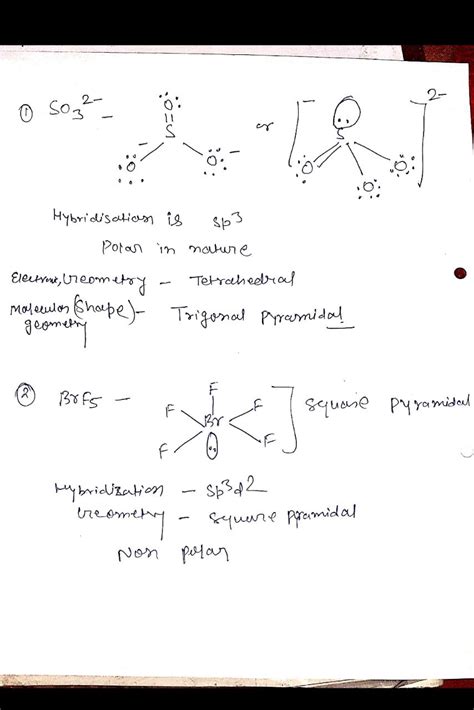 ① SO₃²⁻ –
O
S
O⁻ O⁻
or
[ S O O O ]²⁻
Hybridisation is sp³
Polar in nature
Electronic Geometry – Tetrahedral
Molecular (Shape) –
geometry
Trigonal Pyramidal
② BrF₅ –
F
F Br F
F F
Square Pyramidal
Hybridization – sp³d²
Geometry – square pramidal
Non polar